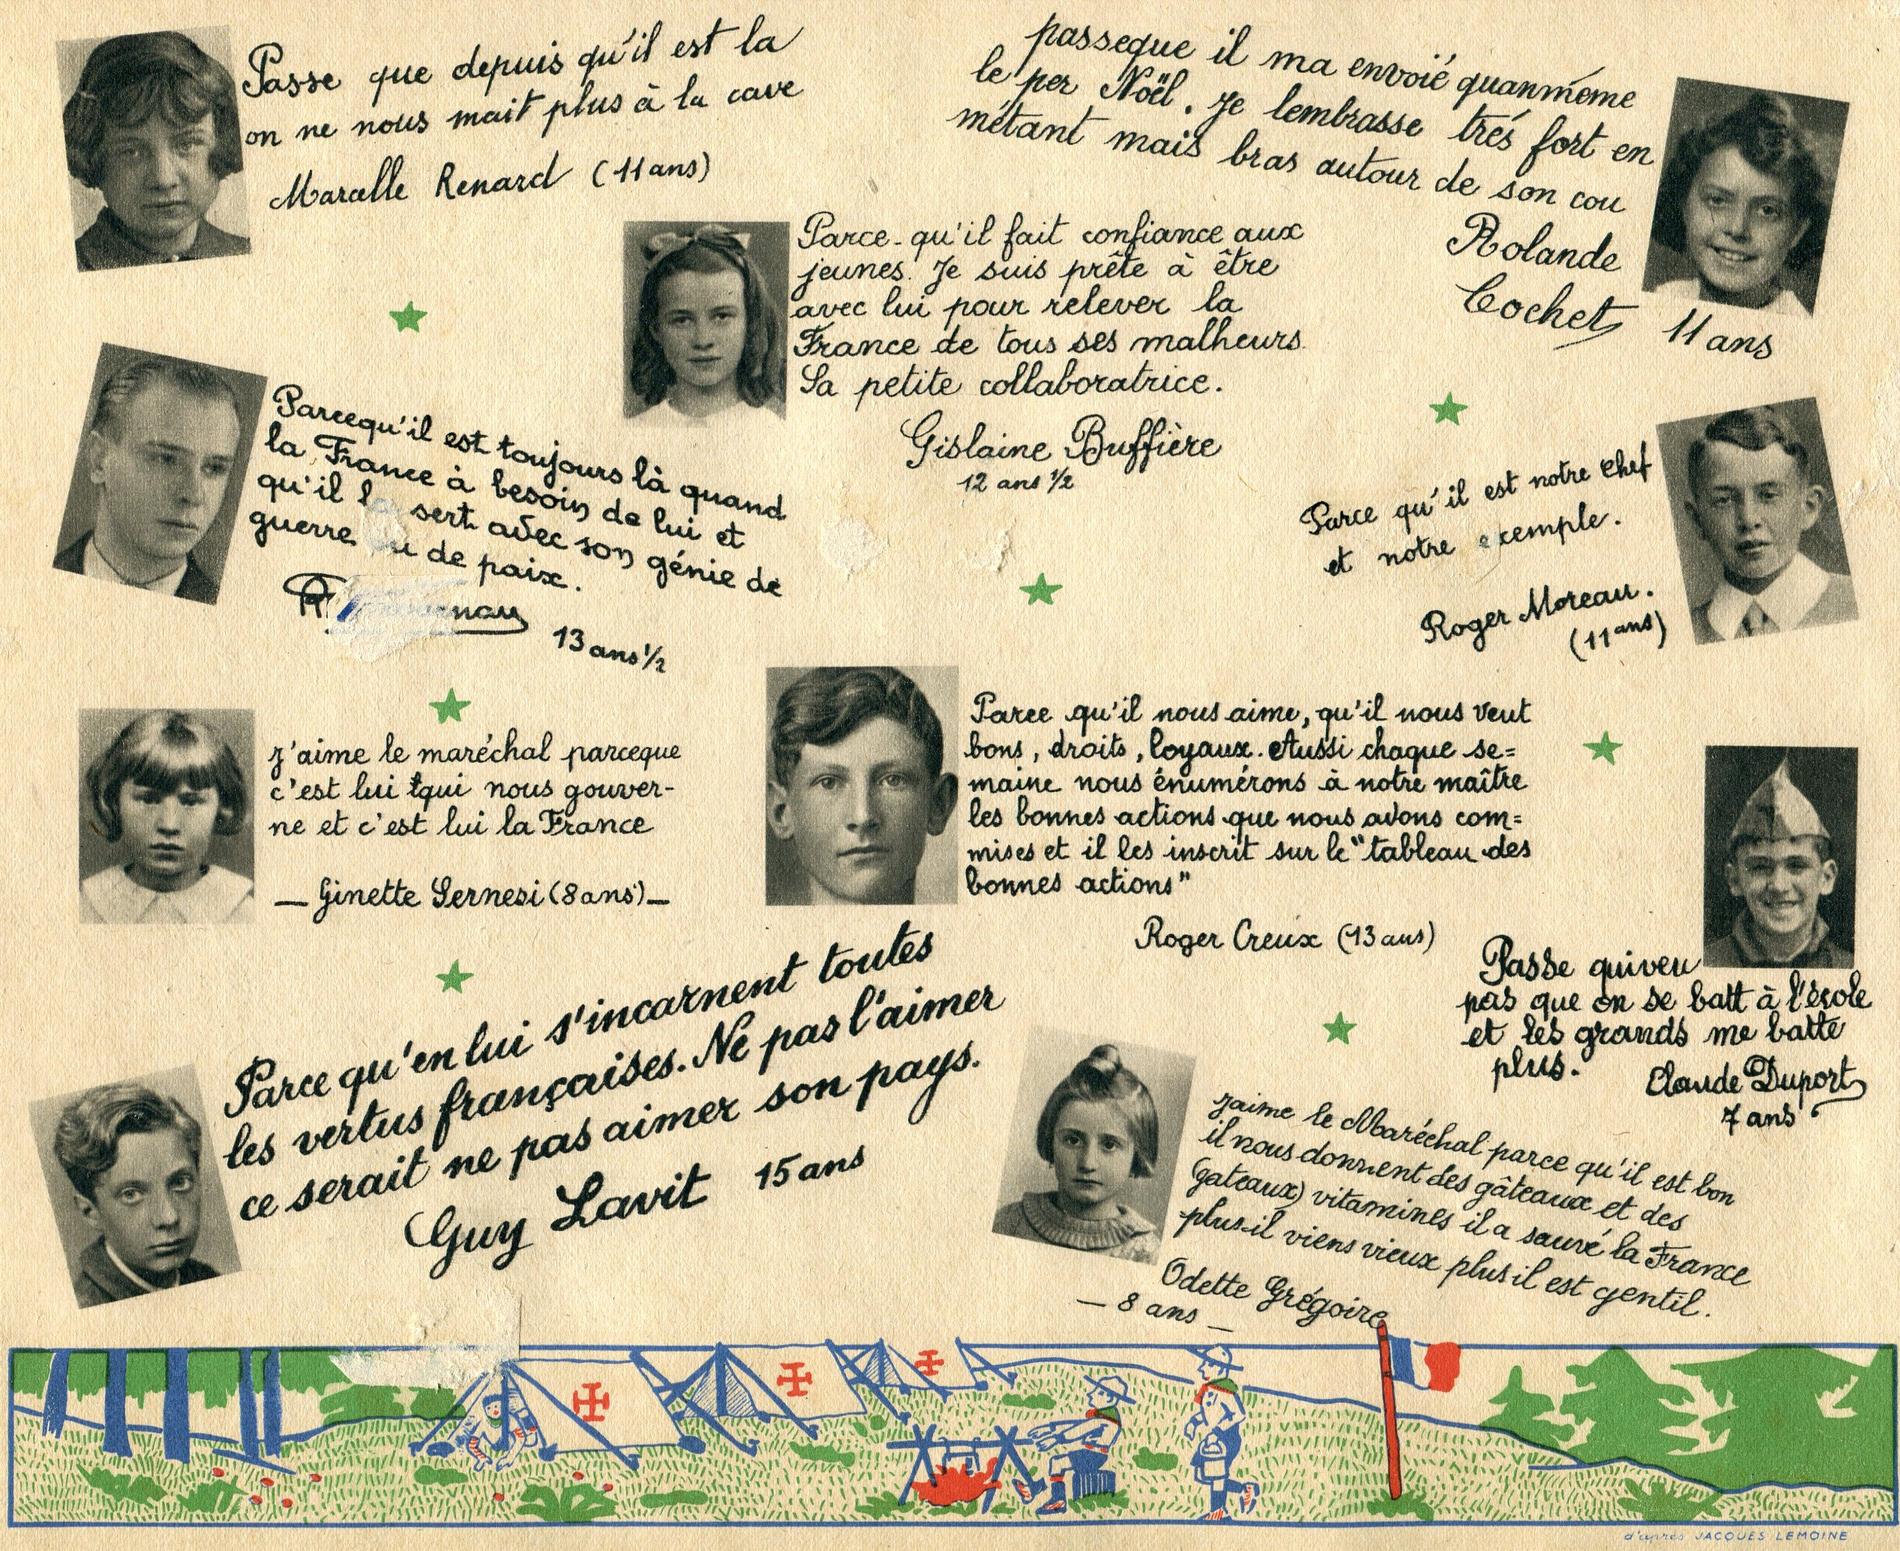 Passe que depuis qu'il est la
on ne nous mait plus à la cave
Marcelle Renard (11 ans)
passeque il ma envoié quanmême
le per Noël. Je lembrasse très fort en
métant mais bras autour de son cou
Rolande
Cochet 11 ans
Parce-qu'il fait confiance aux
jeunes. Je suis prête à être
avec lui pour relever la
France de tous ses malheurs.
Sa petite collaboratrice.
Gislaine Buffière
12 ans 1/2
Parcequ'il est toujours là quand
la France à besoin de lui et
qu'il sert avec son génie de
guerre ou de paix.
13 ans 1/2
Parce qu'il est notre chef
et notre exemple.
Roger Moreau.
(11 ans)
J'aime le maréchal parceque
c'est lui qui nous gouver-
ne et c'est lui la France
— Ginette Sernesi (8 ans) —
Parce qu'il nous aime, qu'il nous veut
bons, droits, loyaux. Aussi chaque se=
maine nous énumérons à notre maître
les bonnes actions que nous avons com=
mises et il les inscrit sur le "tableau des
bonnes actions"
Roger Creux (13 ans)
Passe quiveu
pas que on se batt à l'école
et les grands me batte
plus.
Claude Duport
7 ans
Parce qu'en lui s'incarnent toutes
les vertus françaises. Ne pas l'aimer
ce serait ne pas aimer son pays.
Guy Lavit 15 ans
Jaime le Maréchal parce qu'il est bon
il nous donnent des gâteaux et des
(gateaux) vitamines il a sauvé la France
plus il viens vieux plus il est gentil.
Odette Grégoire
— 8 ans —
d'après JACQUES LEMOINE